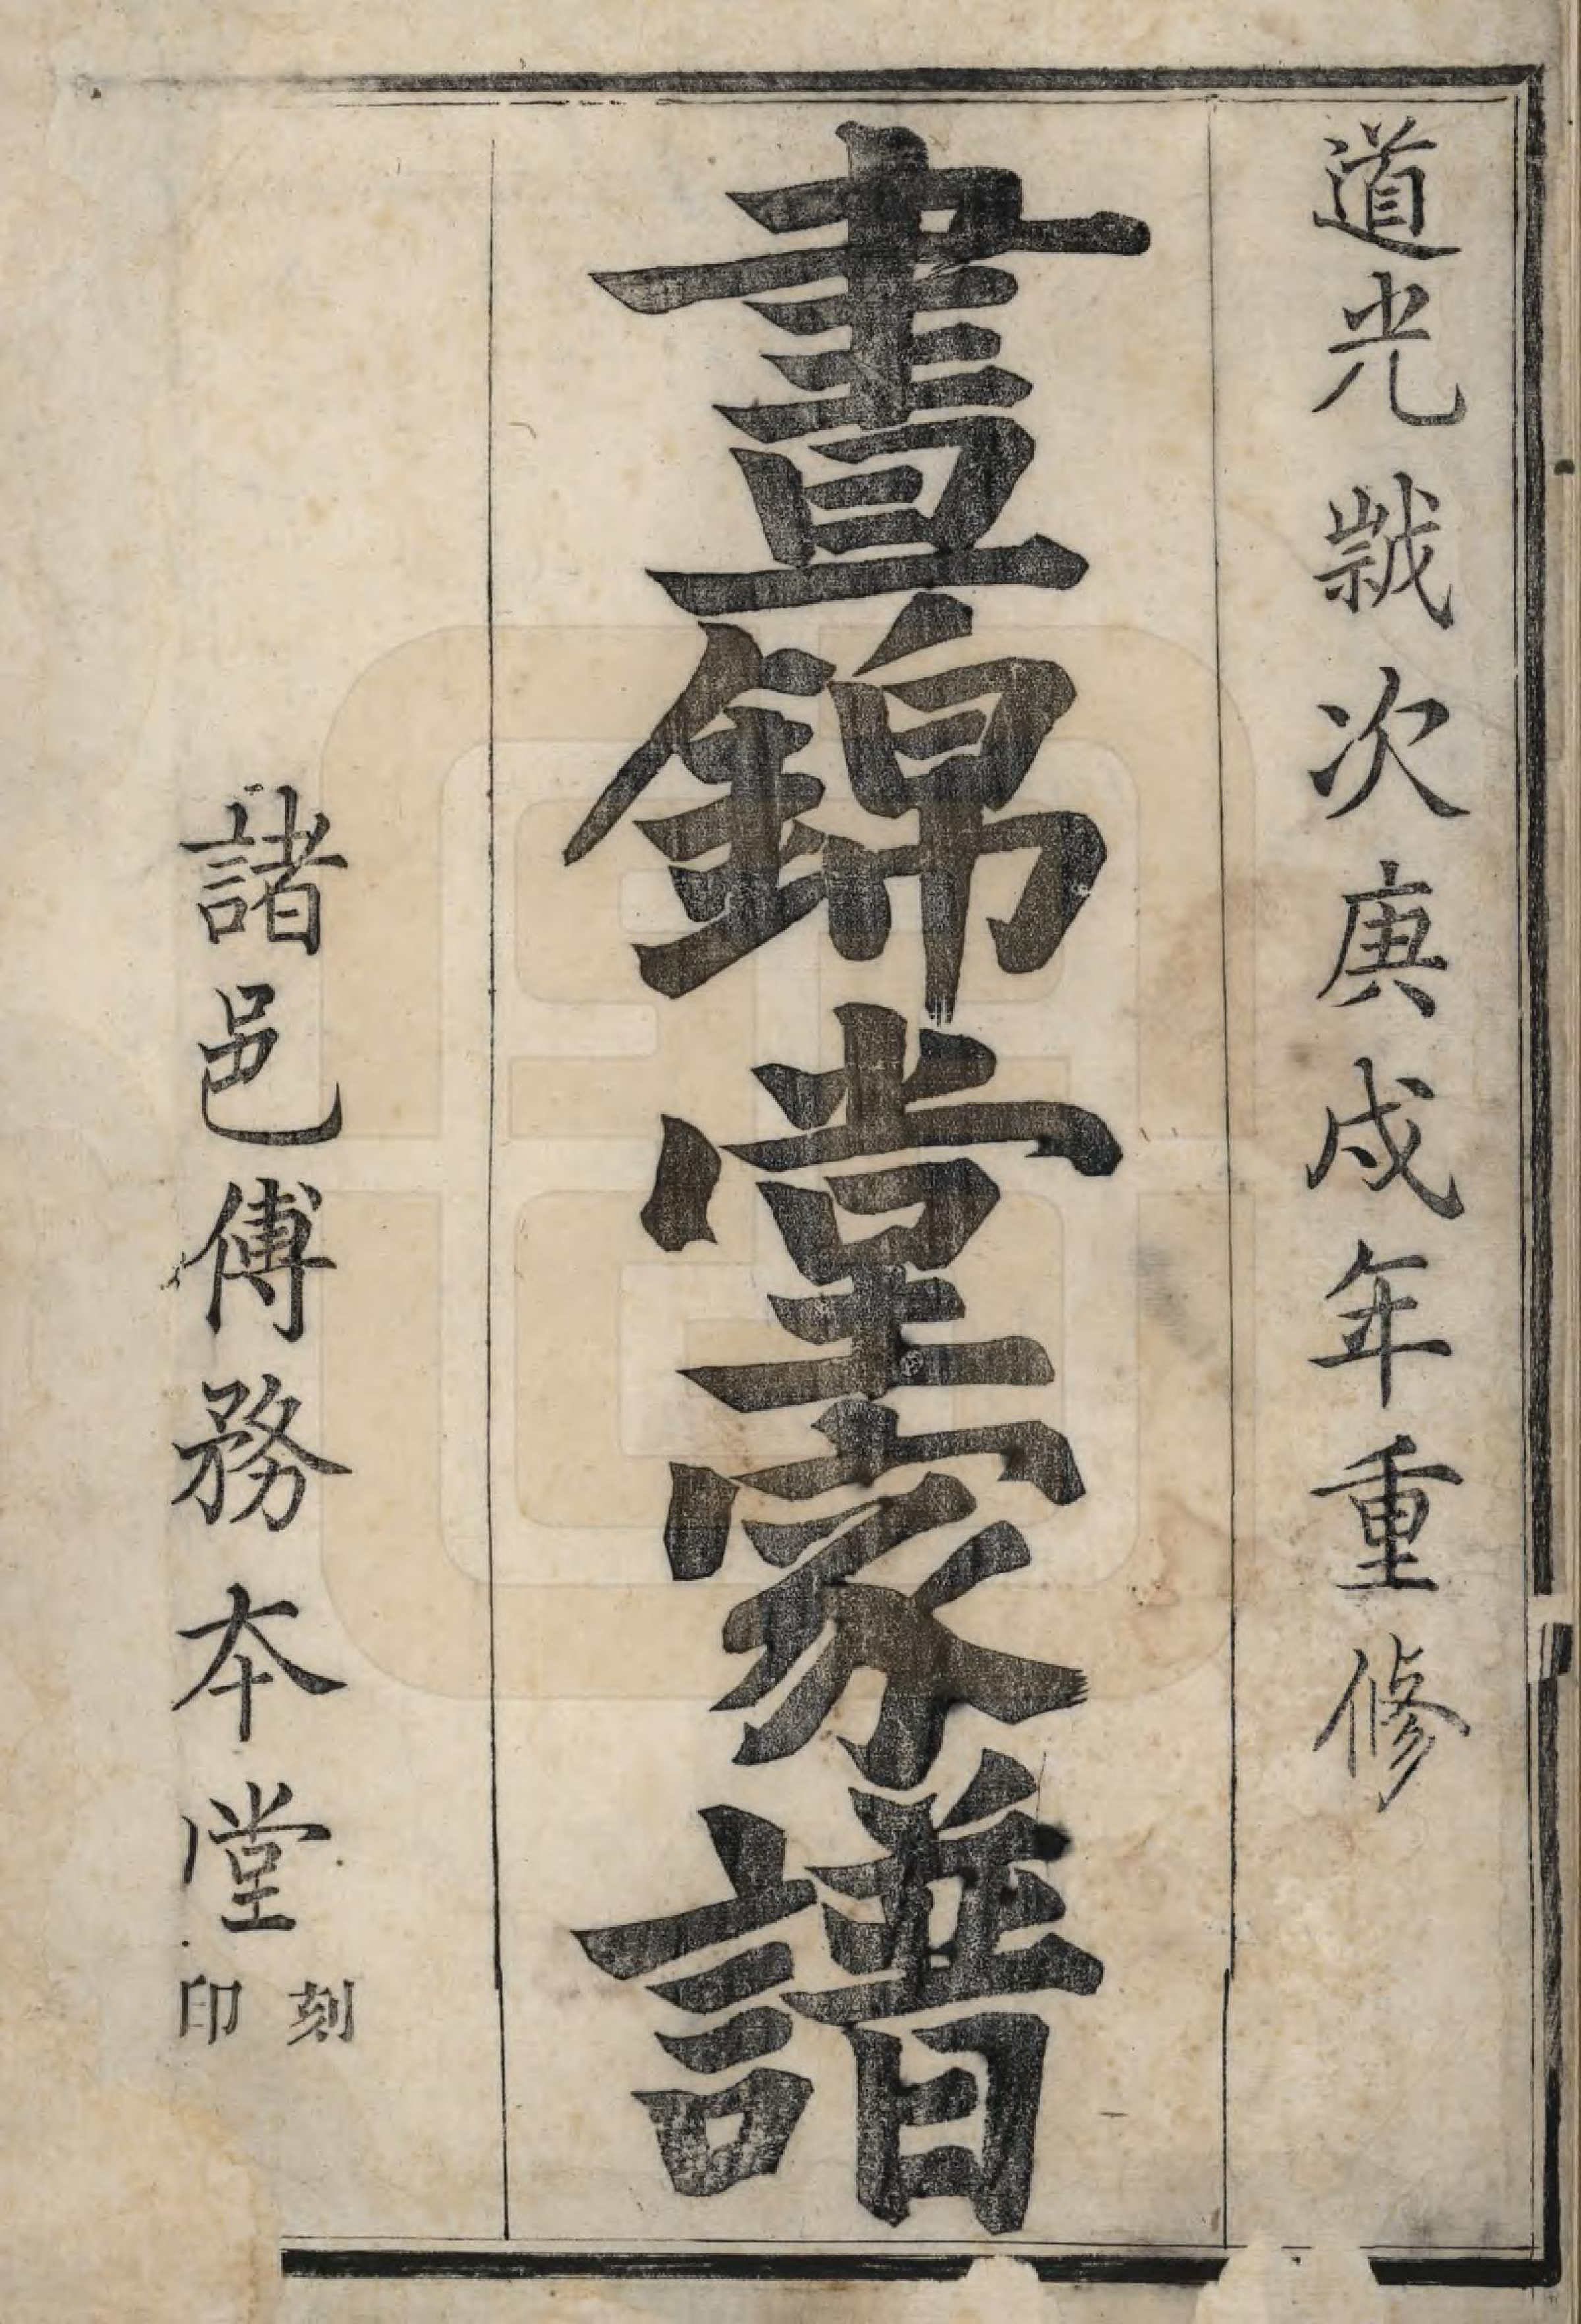 道光歲次庚戌年重修
晝錦堂家譜
諸邑傅務本堂刻印